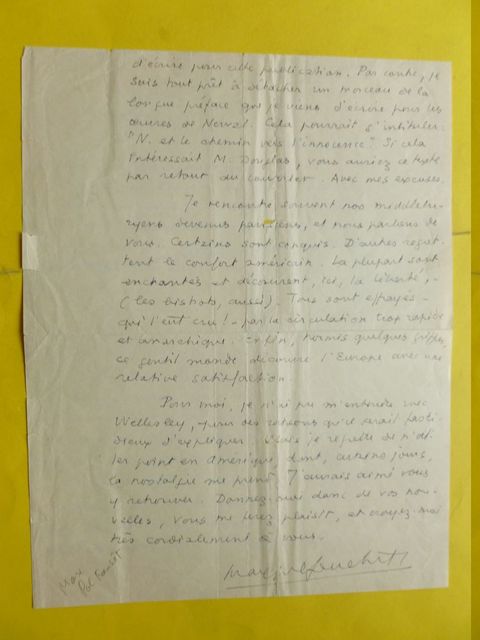 d'écrire pour cette publication. Par contre, je
suis tout prêt à détacher un morceau de la
longue préface que je viens d'écrire pour les
œuvres de Nerval. Cela pourrait s'intituler:
"N. et le chemin vers l'innocence". Si cela
intéressait M. Douglas, vous auriez ce texte
par retour du courrier. Avec mes excuses.
Je rencontre souvent nos middlebu-
ryens devenus parisiens, et nous parlons de
vous. Certains sont conquis. D'autres regret-
tent le comfort américain. La plupart sont
enchantés et découvrent, ici, la liberté,-
(les bistrots, aussi). Tous sont effrayés -
qui l'eût cru! - par la circulation trop rapide
et anarchique. Enfin, hormis quelques grippes,
ce gentil monde découvre l'Europe avec une
relative satisfaction.
Pour moi, je n'ai pu m'entendre avec
Wellesley, - pour des raisons qu'il serait fasti-
dieux d'expliquer. Mais je regrette de n'al-
ler point en Amérique dont, certains jours,
la nostalgie me prend. J'aurais aimé vous
y retrouver. Donnez-moi donc de vos nou-
velles, vous me ferez plaisir, et croyez-moi
très cordialement à vous.
Max-Pol Fouchet
Max
Pol